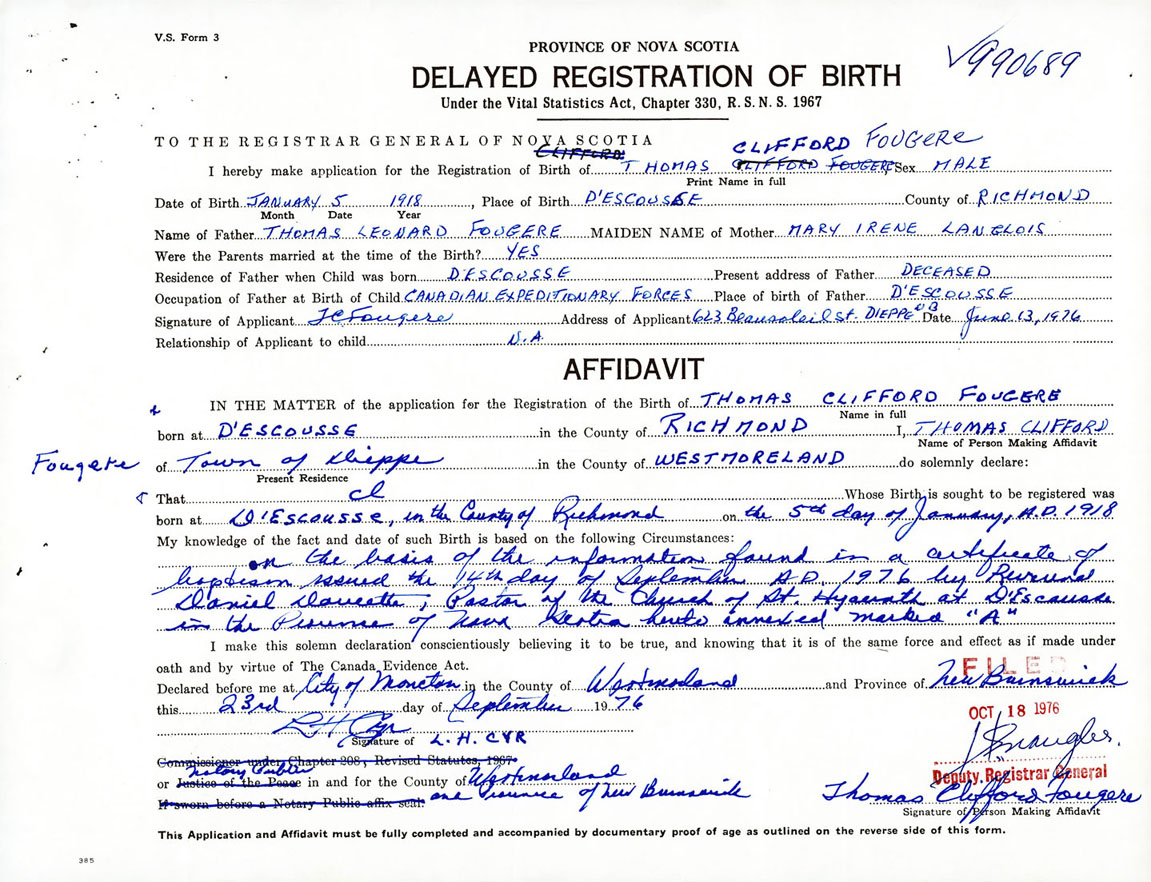 V.S. Form 3
PROVINCE OF NOVA SCOTIA
V990689
DELAYED REGISTRATION OF BIRTH
Under the Vital Statistics Act, Chapter 330, R.S.N.S. 1967
TO THE REGISTRAR GENERAL OF NOVA SCOTIA
CLIFFORD CLIFFORD FOUGERE
I hereby make application for the Registration of Birth of THOMAS CLIFFORD FOUGERE Sex MALE
Print Name in full
Date of Birth JANUARY 5 1918, Place of Birth D'ESCOUSSE County of RICHMOND
Month Date Year
Name of Father THOMAS LEONARD FOUGERE MAIDEN NAME of Mother MARY IRENE LANGLOIS
Were the Parents married at the time of the Birth? YES
Residence of Father when Child was born D'ESCOUSSE Present address of Father DECEASED
Occupation of Father at Birth of Child CANADIAN EXPEDITIONARY FORCES Place of birth of Father D'ESCOUSSE
Signature of Applicant TCFougere Address of Applicant 623 Beausoleil St. DIEPPE NB Date June 13, 1976
Relationship of Applicant to child N.A.
AFFIDAVIT
IN THE MATTER of the application for the Registration of the Birth of THOMAS CLIFFORD FOUGERE
Name in full
born at D'ESCOUSSE in the County of RICHMOND I, THOMAS CLIFFORD
Name of Person Making Affidavit
Fougere of Town of Dieppe in the County of WESTMORELAND do solemnly declare:
Present Residence
That Whose Birth is sought to be registered was
born at D'Escousse, in the County of Richmond on the 5th day of January, A.D. 1918
My knowledge of the fact and date of such Birth is based on the following Circumstances:
on the basis of the information found in a certificate of
baptism issued the 14th day of September A.D. 1976 by Reverend
Daniel Doucette, Pastor of the Church of St. Hyacinth at D'Escousse
in the Province of Nova Scotia hereto annexed marked "A"
I make this solemn declaration conscientiously believing it to be true, and knowing that it is of the same force and effect as if made under
oath and by virtue of The Canada Evidence Act.
FILED
Declared before me at City of Moncton in the County of Westmorland and Province of New Brunswick
this 23rd day of September 1976
OCT 18 1976
Signature of L. H. CYR
Commissioner under Chapter 208, Revised Statutes, 1967
Notary Public
Deputy Registrar General
or Justice of the Peace in and for the County of Westmorland
If sworn before a Notary Public affix seal Province of New Brunswick
Thomas Clifford Fougere
Signature of Person Making Affidavit
This Application and Affidavit must be fully completed and accompanied by documentary proof of age as outlined on the reverse side of this form.
385